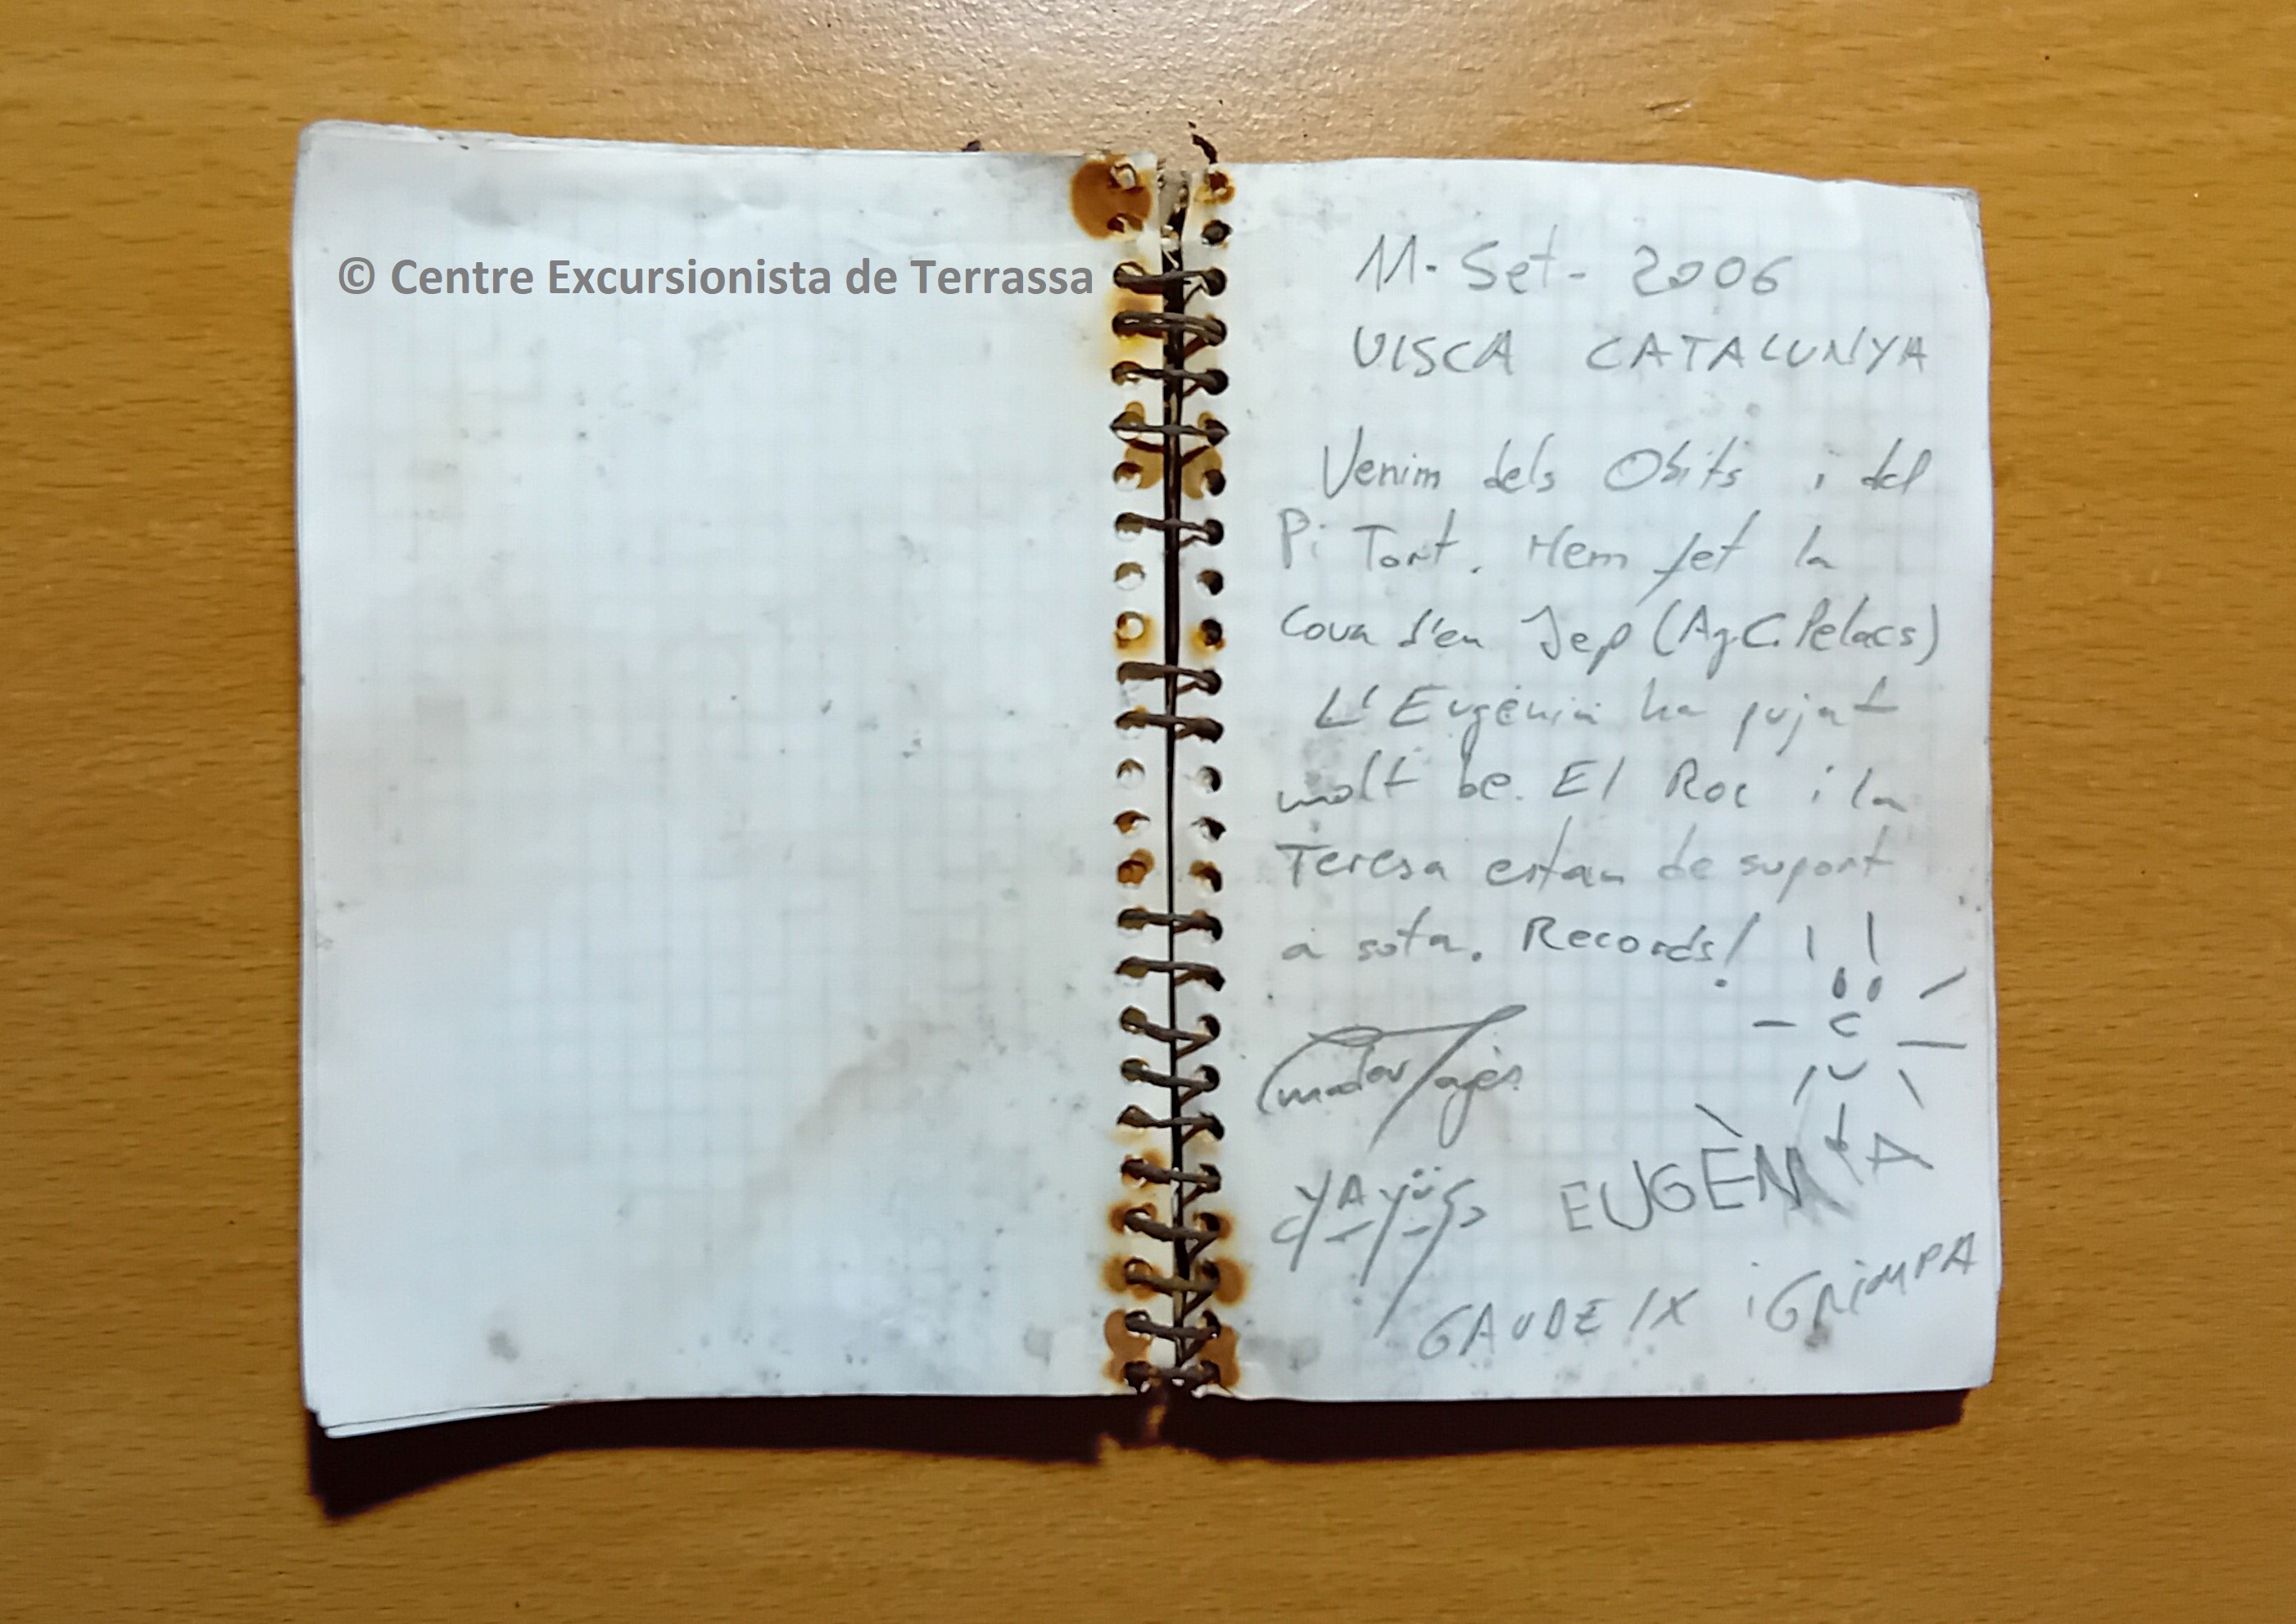 © Centre Excursionista de Terrassa
11. Set - 2006
VISCA CATALUNYA
Venim dels Obits i del
Pi Tort. Hem fet la
Cova d'en Jep (Ag. C. Pelacs)
L'Eugènia ha pujat
molt be. El Roc i la
Teresa estan de suport
a sota. Records!
YAYÜS
EUGÈNIA
GAUDEIX i GRIMPA